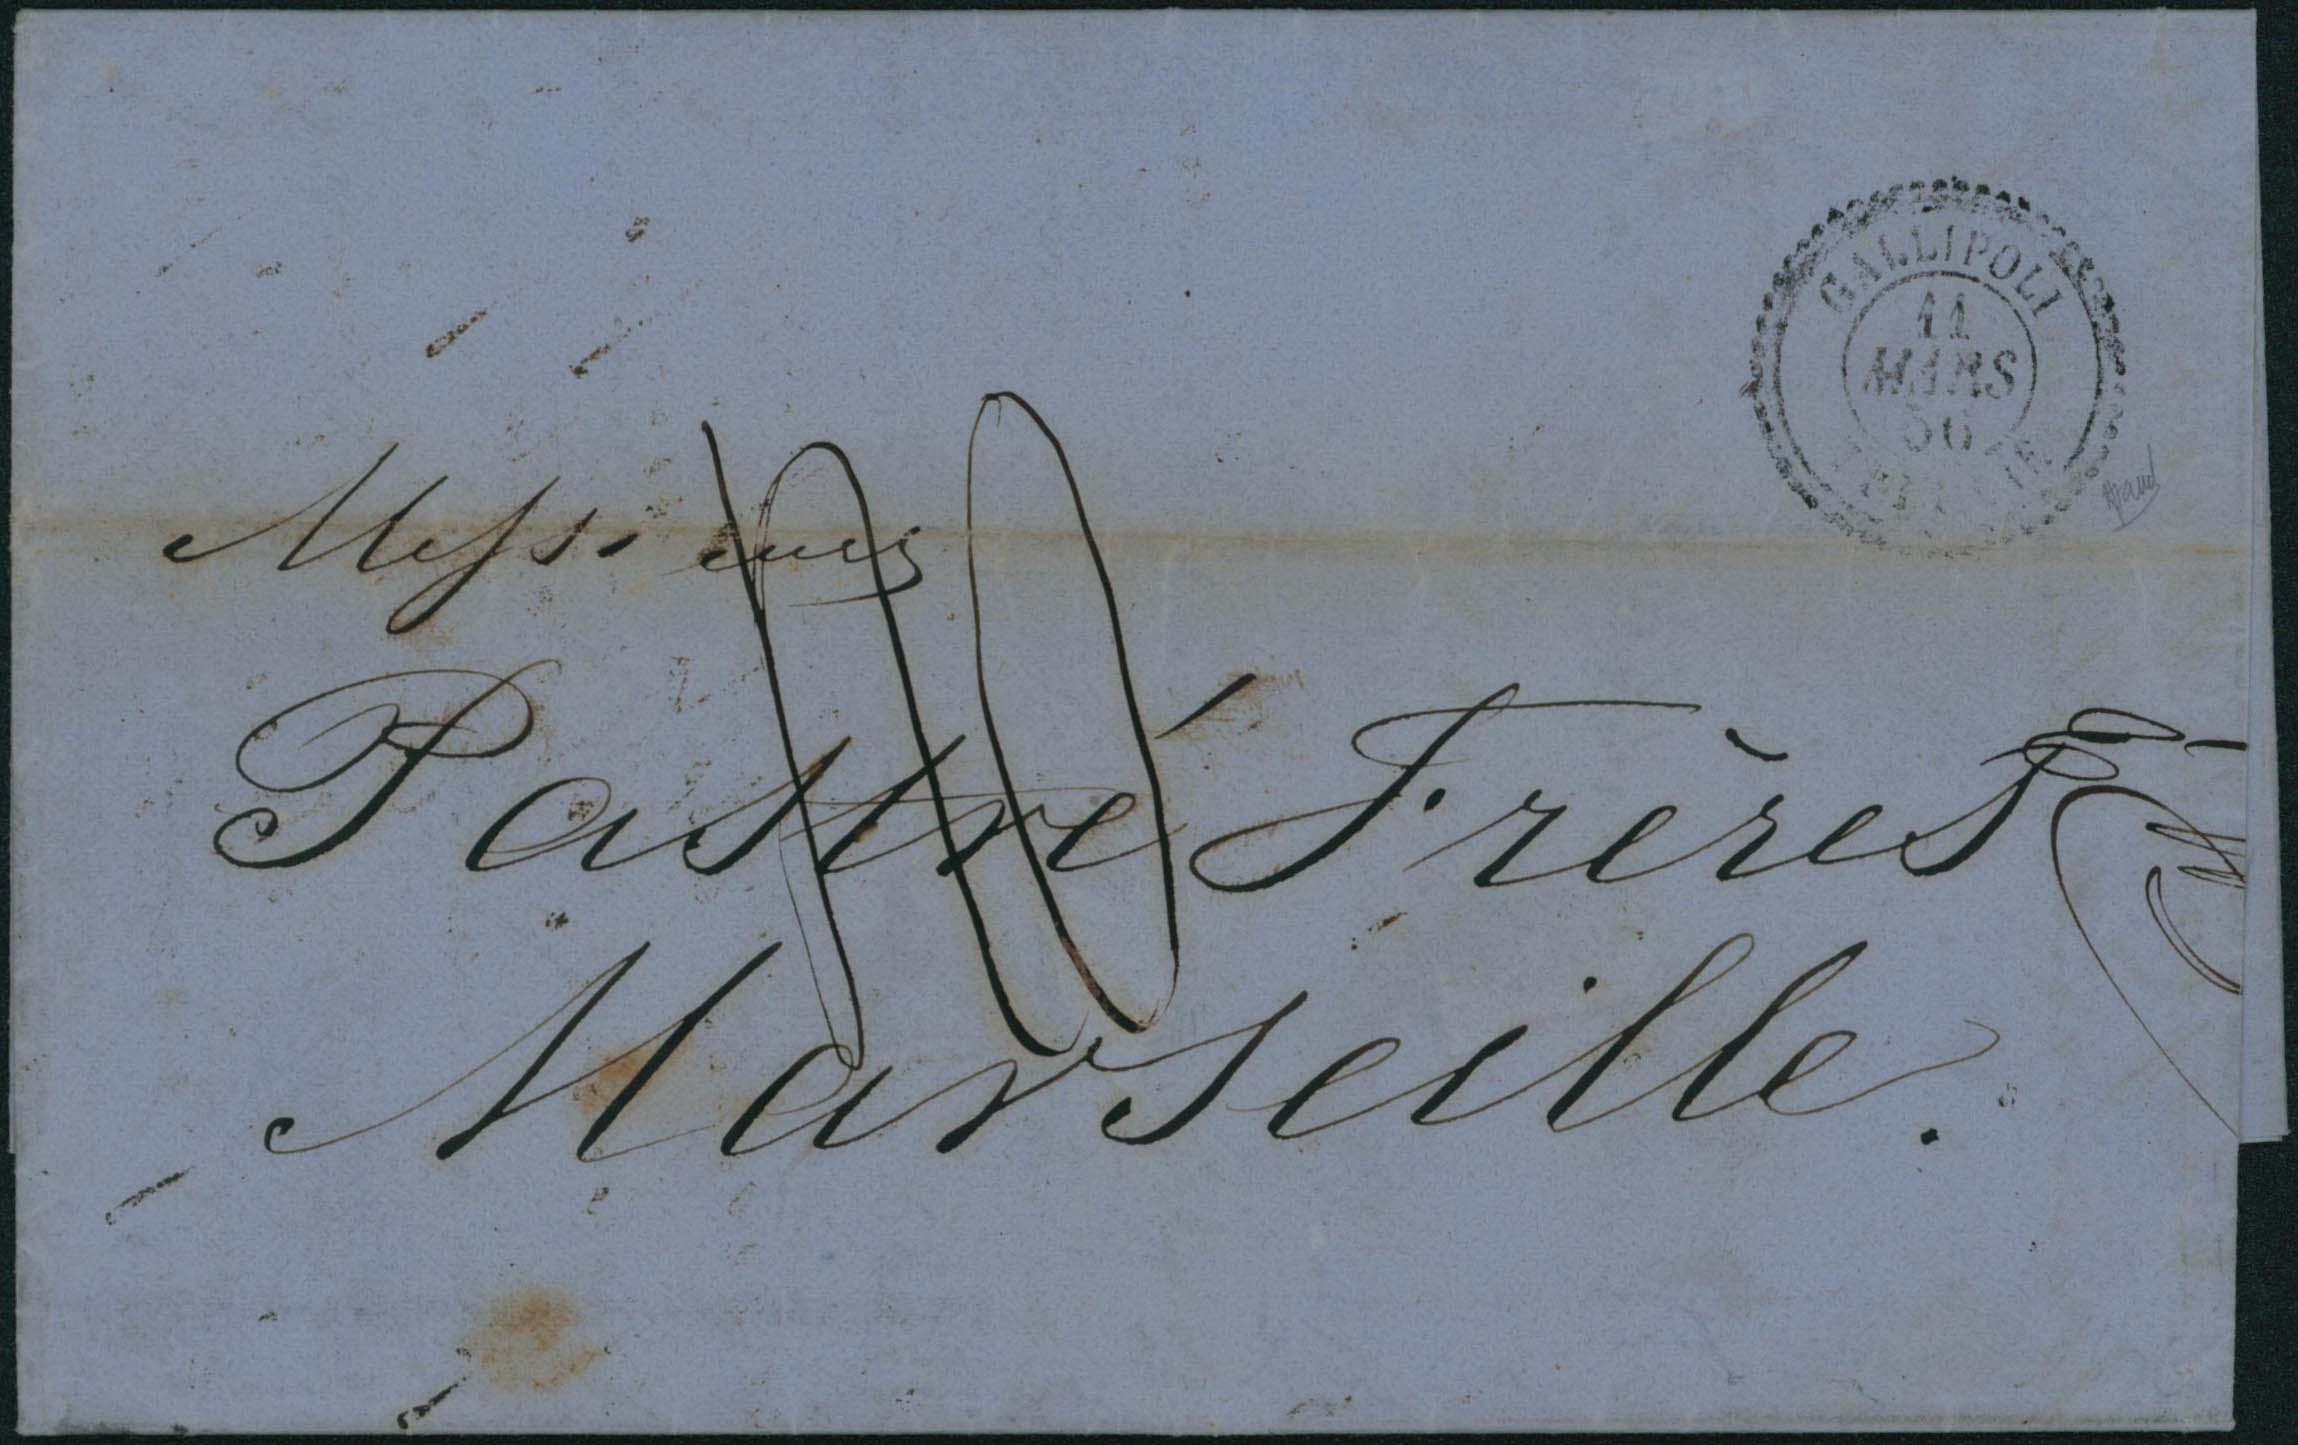 GALLIPOLI
11
MARS
56
Messieurs
Pastré Frères
Marseille.